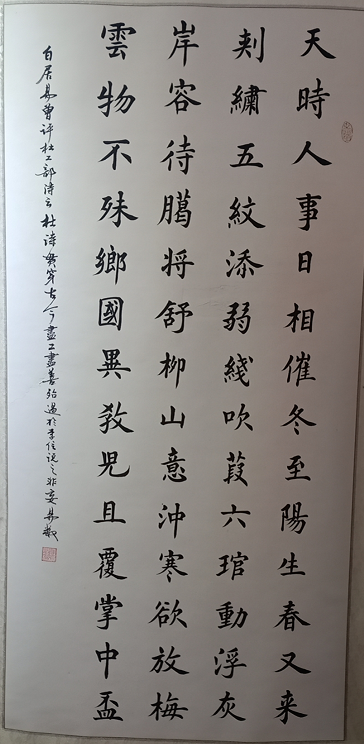 天時人事日相催冬至陽生春又来
刺繡五紋添弱綫吹葭六琯動浮灰
岸容待臈将舒柳山意沖寒欲放梅
雲物不殊鄉國異教児且覆掌中盃
白居易曾評杜工部詩云杜詩貫穿古今盡工盡善殆過於李信說之非妄